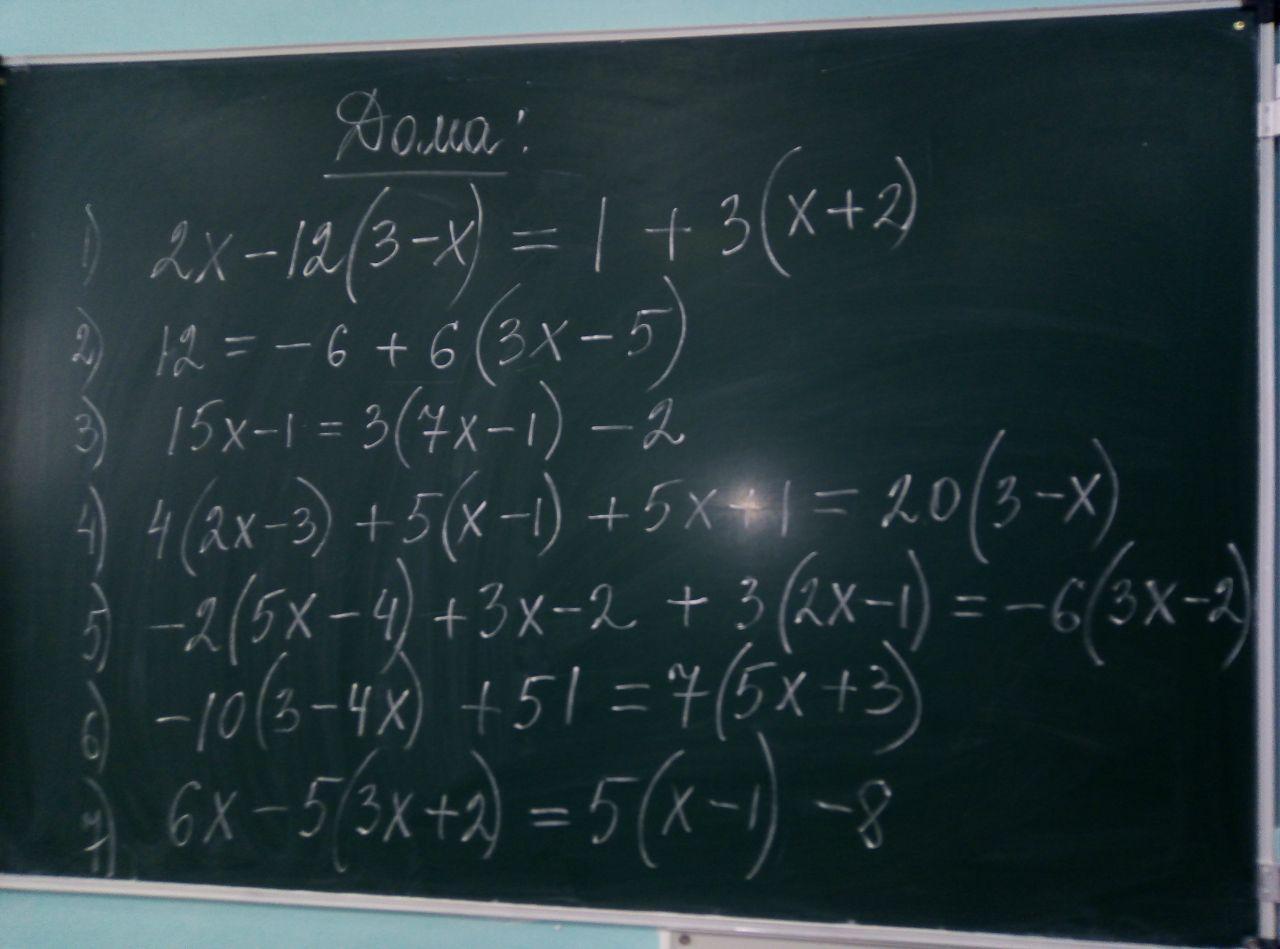 Дома:
1) 2x-12(3-x) = 1 + 3(x+2)
2) 12 = -6 + 6(3x-5)
3) 15x-1 = 3(7x-1) -2
4) 4(2x-3) +5(x-1) +5x+1 = 20(3-x)
5) -2(5x-4) +3x-2 + 3(2x-1) = -6(3x-2)
6) -10(3-4x) +51 = 7(5x+3)
7) 6x-5(3x+2) = 5(x-1) -8